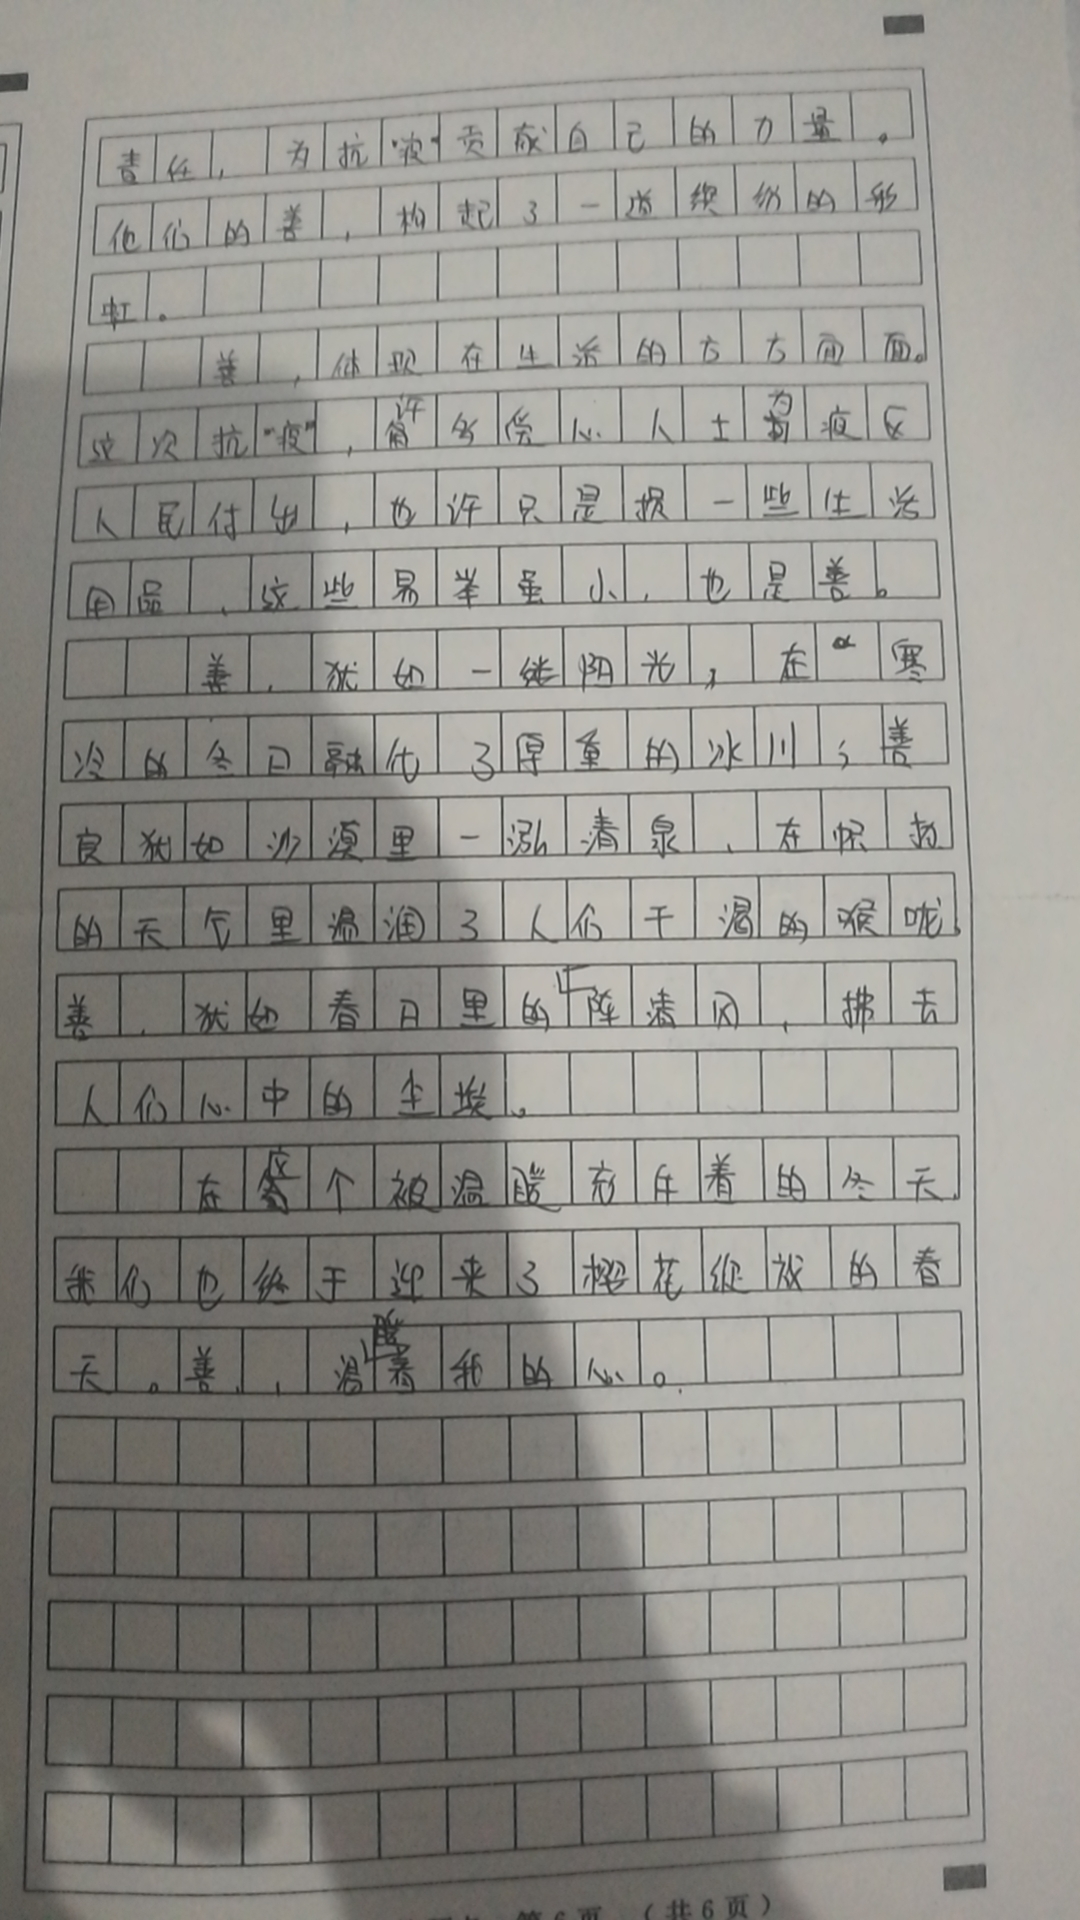 责任,为抗"疫"贡献自己的力量。
他们的善,构起了一道缤纷的彩
虹。
善,体现在生活的方方面面。
这次抗"疫",许多爱心人士为疫区
人民付出,也许只是捐一些生活
用品,这些易举虽小,也是善。
善,犹如一缕阳光,在寒
冷的冬日融化了厚重的冰川;善
良犹如沙漠里一泓清泉,在炽热
的天气里温润了人们干渴的喉咙。
善,犹如春日里的阵清风,拂去
人们心中的尘埃。
在这个被温暖充斥着的冬天,
我们也终于迎来了樱花绽放的春
天。善,温暖着我的心。
第6页 (共6页)